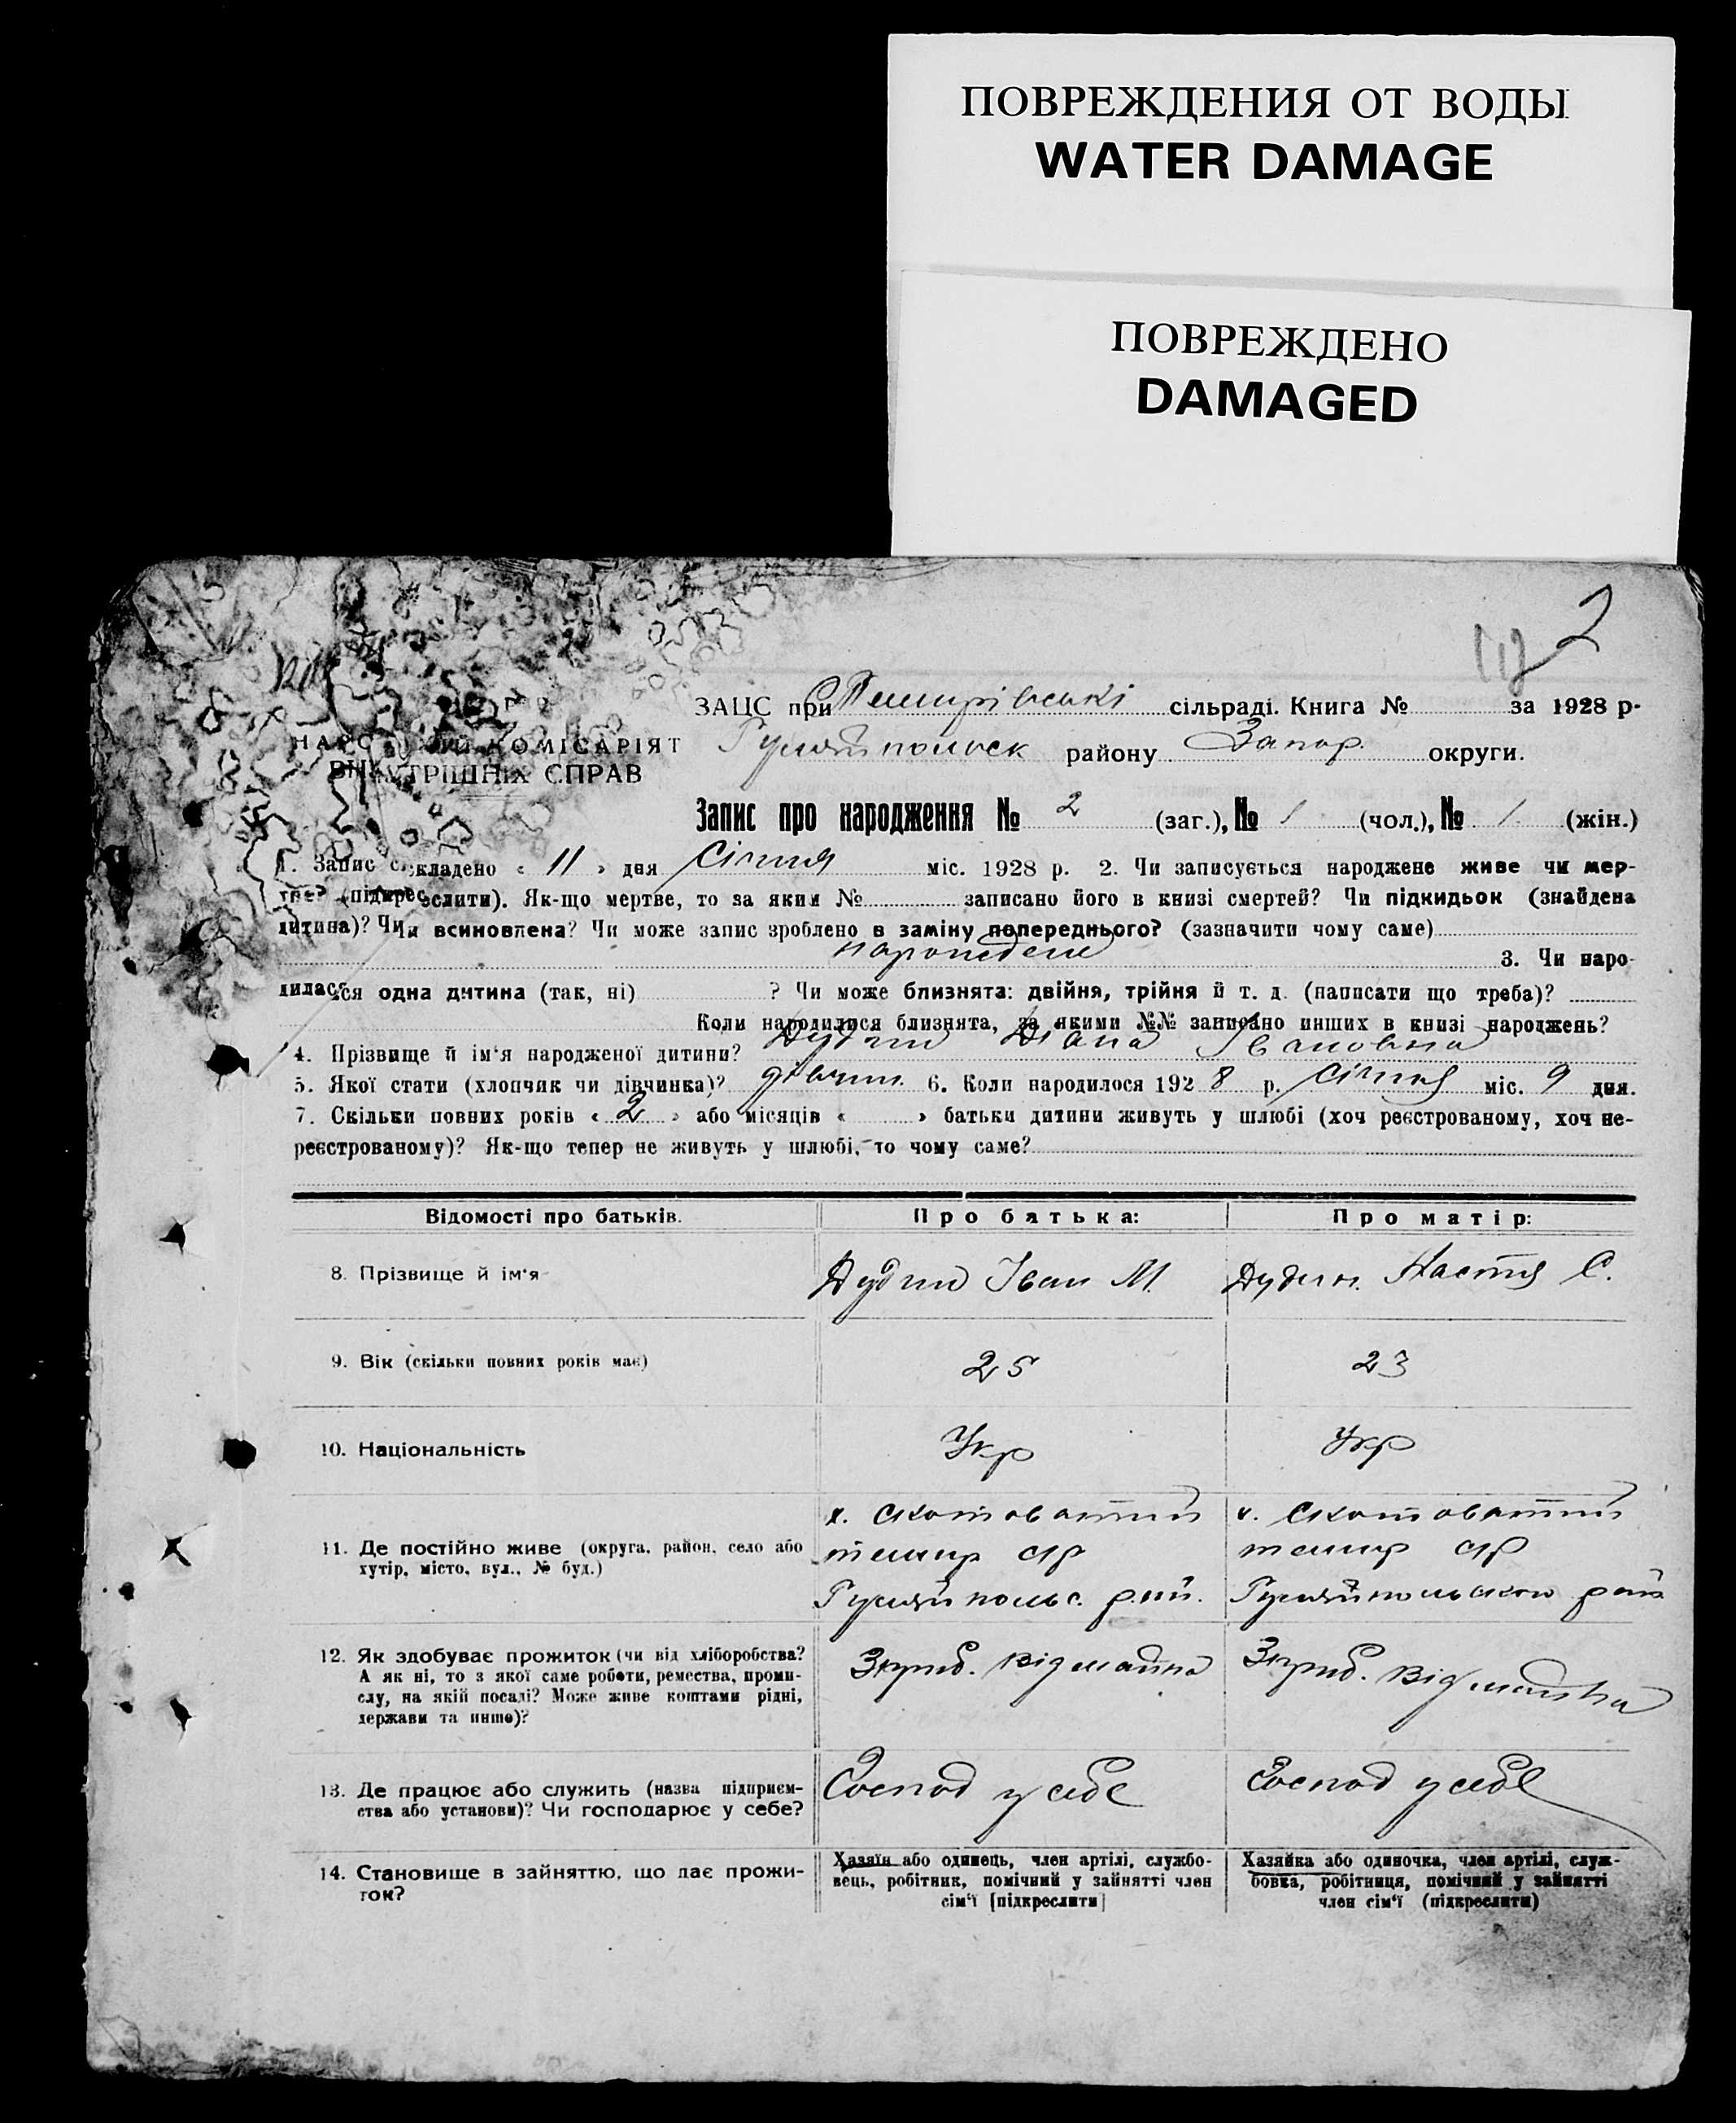 ПОВРЕЖДЕНИЯ ОТ ВОДЫ
WATER DAMAGE
ПОВРЕЖДЕНО
DAMAGED
2
ЗАЦС при Темирівські сільраді. Книга № за 1928 р.
НАРО КОМІСАРІЯТ Гуляйпольск району Запор. округи.
ВНУТРІШНІХ СПРАВ
Запис про народження № 2 (заг.), № 1 (чол.), № 1 (жін.)
1. Запис складено « 11 » дня Січня міс. 1928 р. 2. Чи записується народжене живе чи мер-
тве? (підкреслити). Як-що мертве, то за яким № записано його в книзі смертей? Чи підкидьок (знайдена
дитина)? Чи всиновлена? Чи може запис зроблено в заміну попереднього? (зазначити чому саме)
3. Чи наро-
дилася одна дитина (так, ні) ? Чи може близнята: двійня, трійня й т. д. (написати що треба)?
Коли народилися близнята, за якими №№ записано инших в книзі народжень?
4. Прізвище й ім'я народженої дитини? Дудин Івановна
5. Якої стати (хлопчик чи дівчинка)? дівчин. 6. Коли народилося 1928 р. Січня міс. 9 дня.
7. Скільки повних років « 2 » або місяців « » батьки дитини живуть у шлюбі (хоч реєстрованому, хоч не-
реєстрованому)? Як-що тепер не живуть у шлюбі, то чому саме?
Відомості про батьків. Про батька: Про матір:
8. Прізвище й ім'я Дудин Іван М. Дудин. Настя С.
9. Вік (скільки повних років має) 25 23
10. Національність Укр Укр
х. Скотоватий х. Скотоватий
11. Де постійно живе (округа, район, село або темир с/р темир с/р
хутір, місто, вул., № буд.)
Гуляйпольс. рай. Гуляйпольского рай
12. Як здобуває прожиток (чи від хліборобства?
А як ні, то з якої саме роботи, ремества, проми-
слу, на якій посаді? Може живе коштами рідні,
держави та инше)?
13. Де працює або служить (назва підприєм- Господ у себе Господ у себе
ства або установи)? Чи господарює у себе?
14. Становище в зайняттю, що дає прожи-
ток?
Хазяїн або одинець, член артілі, службо-
вець, робітник, помічний у зайнятті член
сім'ї [підкреслити]
Хазяйка або одиночка, член артілі, служ-
бовка, робітниця, помічний у зайнятті
член сім'ї (підкреслити)